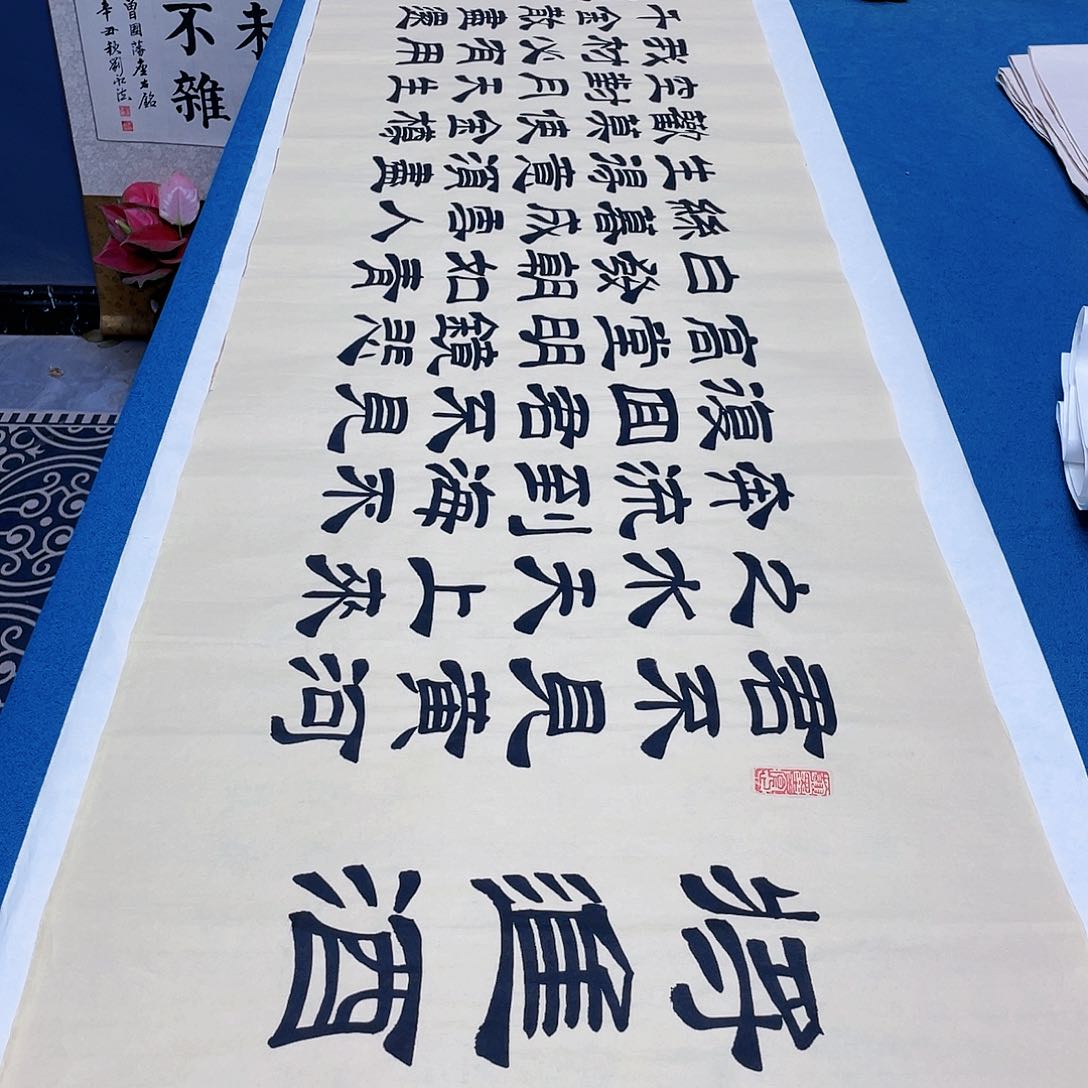 將進酒
君不見黃河
之水天上來
奔流到海不
復回君不見
高堂明鏡悲
白發朝如青
絲暮成雪人
生得意須盡
歡莫使金樽
空對月天生
我材必有用
千金散盡還
未
不雜
曾國藩座右銘
辛丑秋劉